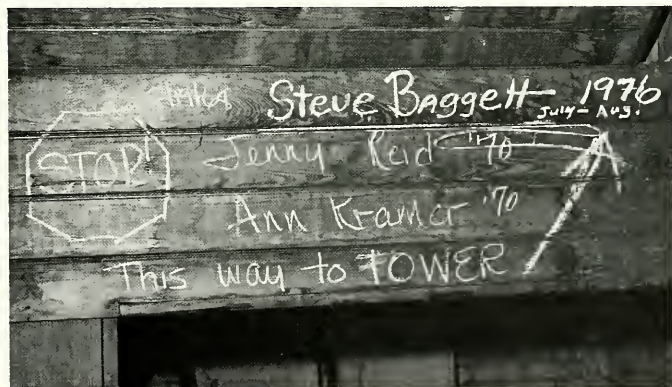 Steve Baggett 1976
July - Aug.
STOP!
Jenny Reid '70
Ann Kramer '70
This way to TOWER